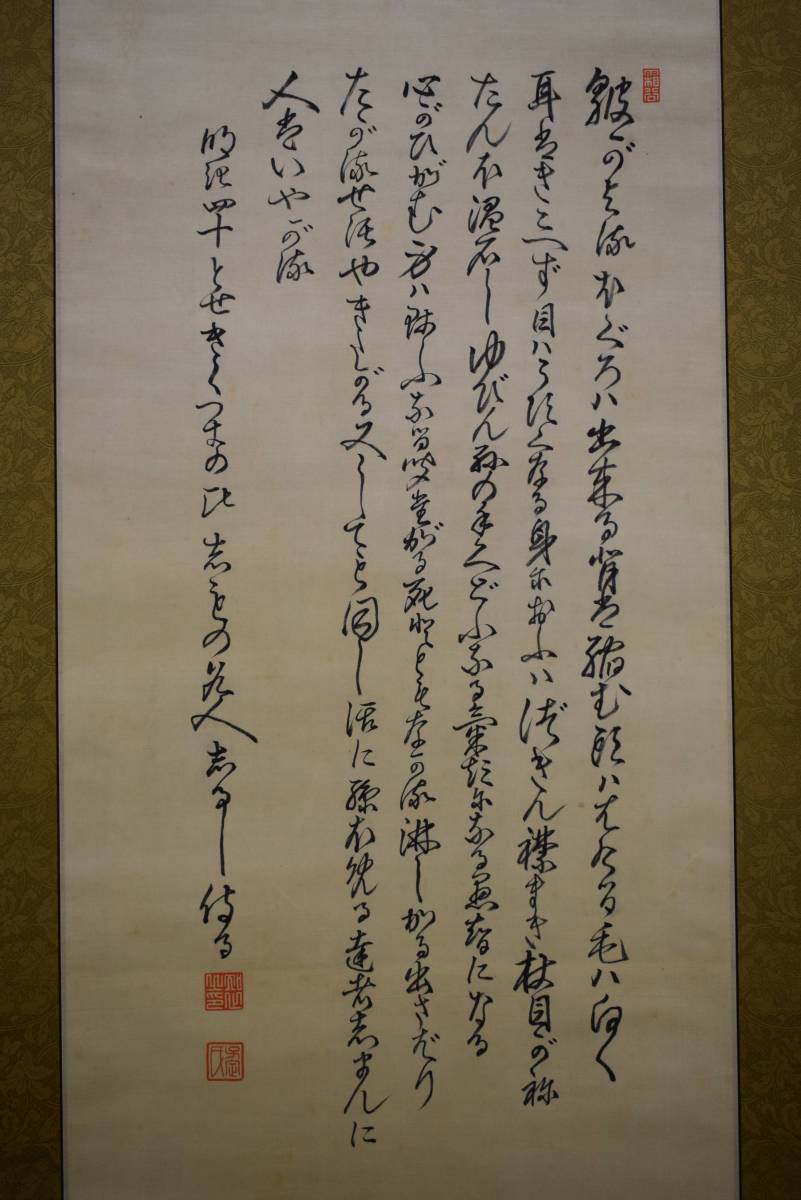 皺がよるほくろハ出来る背は縮む頭ハはげる毛ハ白く
耳はきこへず目ハうすくなる身におふハづきん襟まき杖目がね
たんほ温石しゆびん孫の手くどふなる氣短になる愚智になる
心がひがむ身ハふなる聞たがる死ともながる淋しがる出さばり
たがる世話やきたがる又しても同し話に孫を誉る達者じまんに
人はいやがる
明治四十とせきくつきの比しもの老人しるし侍る